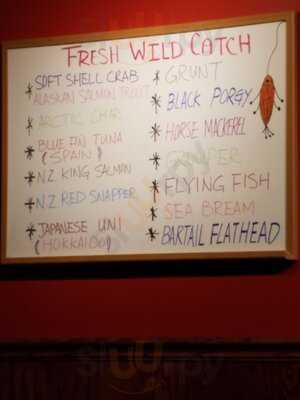 FRESH WILD CATCH
* SOFT SHELL CRAB
ALASKAN SALMON TROUT
* ARCTIC CHAR
* BLUE FIN TUNA
(SPAIN)
* N.Z KING SALMAN
* N.Z RED SNAPPER
* JAPANESE UNI
(HOKKAIDO)
* GRUNT
* BLACK PORGY
* HORSE MACKEREL
*
* FLYING FISH
* SEA BREAM
* BARTAIL FLATHEAD